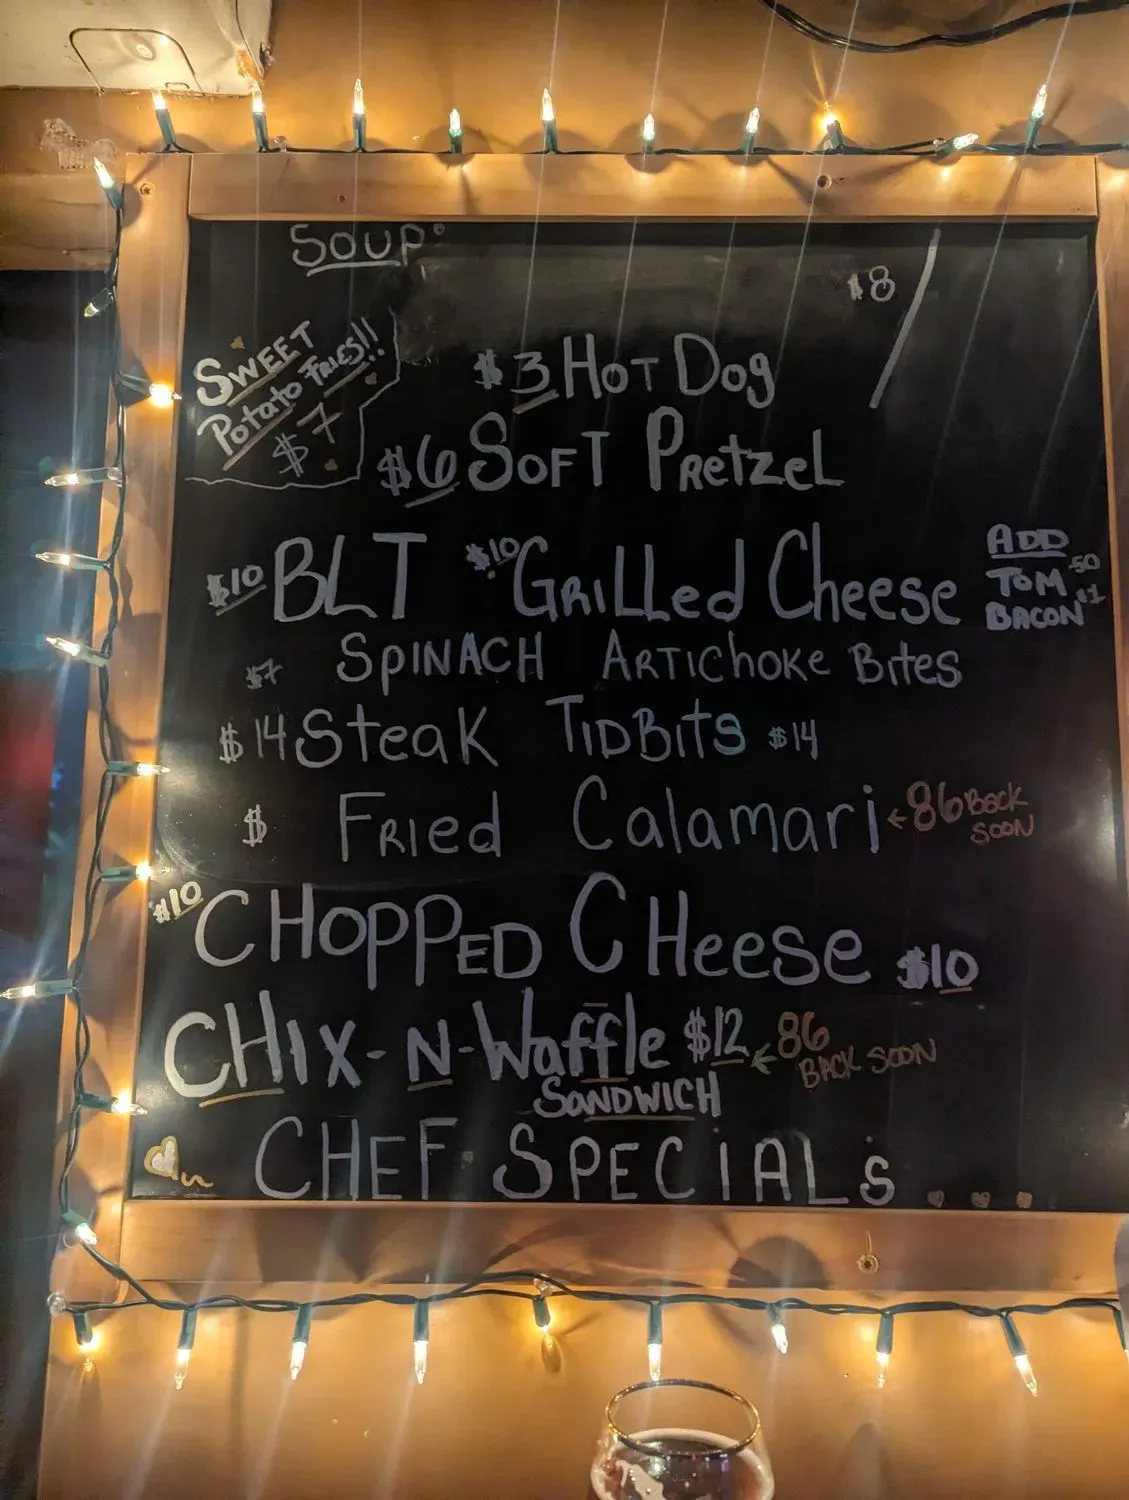 SOUP:
$8
SWEET
Potato FRIES!!
$7
$3 HOT Dog
$6 SOFT PRetzeL
$10 BLT $10 GRiLLed Cheese
ADD
TOM .50
BACON $1
$7 SPINACH ARTIChoKe Bites
$14 SteaK TIDBitS $14
$ FRied Calamari ← 86 Back
SOON
$10 CHOPPED CHeese $10
CHIX-N-Waffle $12 ← 86
BACK SOON
SANDWICH
CHEF SPECiALs...